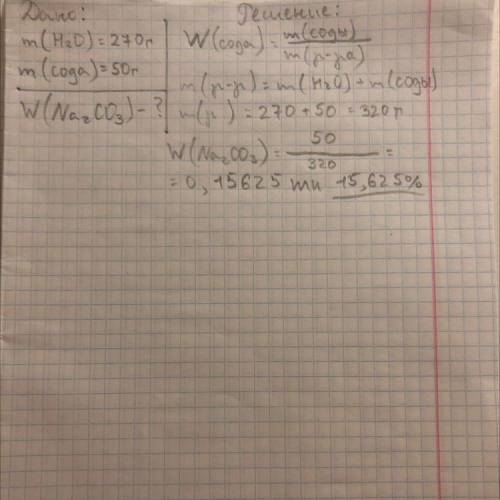 Дано:
m(H₂O)=270г
m(сода)=50г
W(Na₂CO₃)-?
Решение:
W(сода)=m(соды)/m(р-ра)
m(р-р)=m(H₂O)+m(соды)
m(р)=270+50=320г
W(Na₂CO₃)=50/320=
=0,15625 или 15,625%